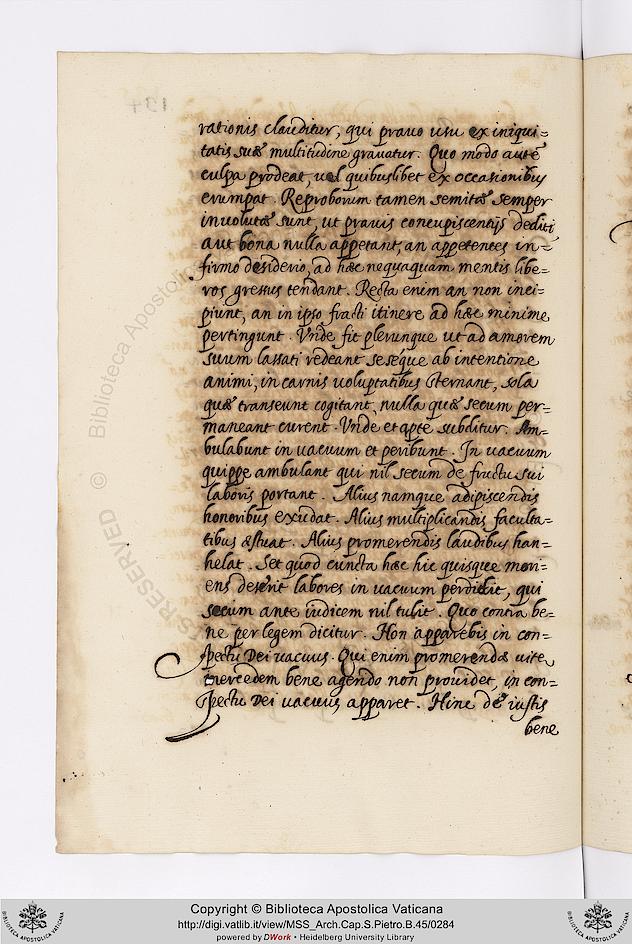 rationis clauditur, qui prauo usu ex iniqui=
tatis suæ multitudine grauatur. Quo modo autē
culpa prodeat, uel quibuslibet ex occasionibus
erumpat. Reproborum tamen semitæ semper
inuolutæ sunt, ut prauis concupiscentijs dediti,
aut bona nulla appetant, an appetentes in=
firmo desiderio, ad hæc nequaquam mentis libe=
ros gressus tendant. Recta enim an non inci=
piunt, an in ipso fracti itinere ad hæc minime
pertingunt. Vnde fit plerunque ut ad amorem
suum lassati redeant seseque ab intentione
animi, in carnis uoluptatibus sternant, sola
quæ transeunt cogitant, nulla quæ secum per=
maneant curent. Vnde et apte subditur. Am=
bulabunt in uacuum et peribunt. In uacuum
quippe ambulant qui nil secum de fructu sui
laboris portant. Alius namque adipiscendis
honoribus exudat. Alius multiplicandis faculta=
tibus æstuat. Alius promerendis laudibus han=
helat. Set quod cuncta hæc hic quisque mori=
ens deserit labores in uacuum perdidit, qui
secum ante iudicem nil tulit. Quo contra be=
ne per legem dicitur. Non apparebis in con=
spectu Dei uacuus. Qui enim promerendæ uitæ
mercedem bene agendo non prouidet, in con=
spectu Dei uacuus apparet. Hinc de iustis
bene
134
RIGHTS RESERVED © Biblioteca Apostolica
BIBLIOTECA APOSTOLICA VATICANA
Copyright © Biblioteca Apostolica Vaticana
http://digi.vatlib.it/view/MSS_Arch.Cap.S.Pietro.B.45/0284
powered by DWork • Heidelberg University Library
BIBLIOTECA APOSTOLICA VATICANA